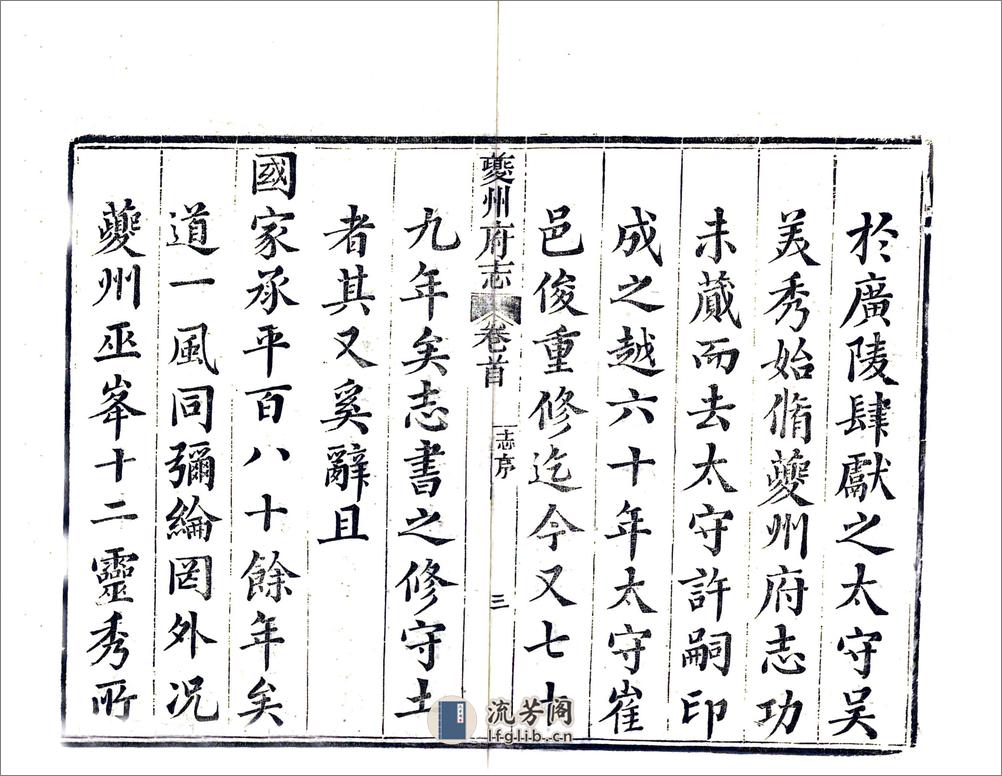 於廣陵肆獻之太守吴
美秀始脩夔州府志功
未蕆而去太守許嗣印
成之越六十年太守崔
邑俊重修迄今又七十
夔州府志
卷首
志序
三
九年矣志書之修守土
者其又奚辭且
國家承平百八十餘年矣
道一風同彌綸罔外况
夔州巫峯十二靈秀所
流芳阁
lfglib.cn